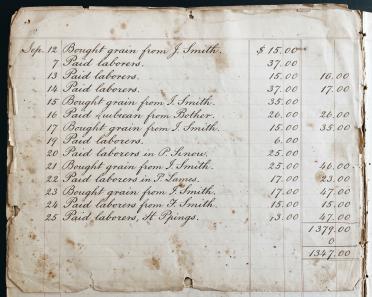 Sep. 12 Bought grain from J. Smith. $ 15.00
7 Paid laborers. 37.00
13 Paid laborers. 15.00 16.00
14 Paid laborers. 37.00 17.00
15 Bought grain from I. Smith. 35.00
16 Paid from Bother. 26.00 26.00
17 Bought grain from I. Smith. 15.00 35.00
19 Paid laborers. 6.00
20 Paid laborers in P. 25.00
21 Bought grain from I. Smith. 25.00 46.00
22 Paid laborers in P. 17.00 23.00
23 Bought grain from I. Smith. 17.00 47.00
24 Paid laborers from F. Smith. 15.00 15.00
25 Paid laborers, H. Ppings. 13.00 47.00
1379.00
0
1347.00